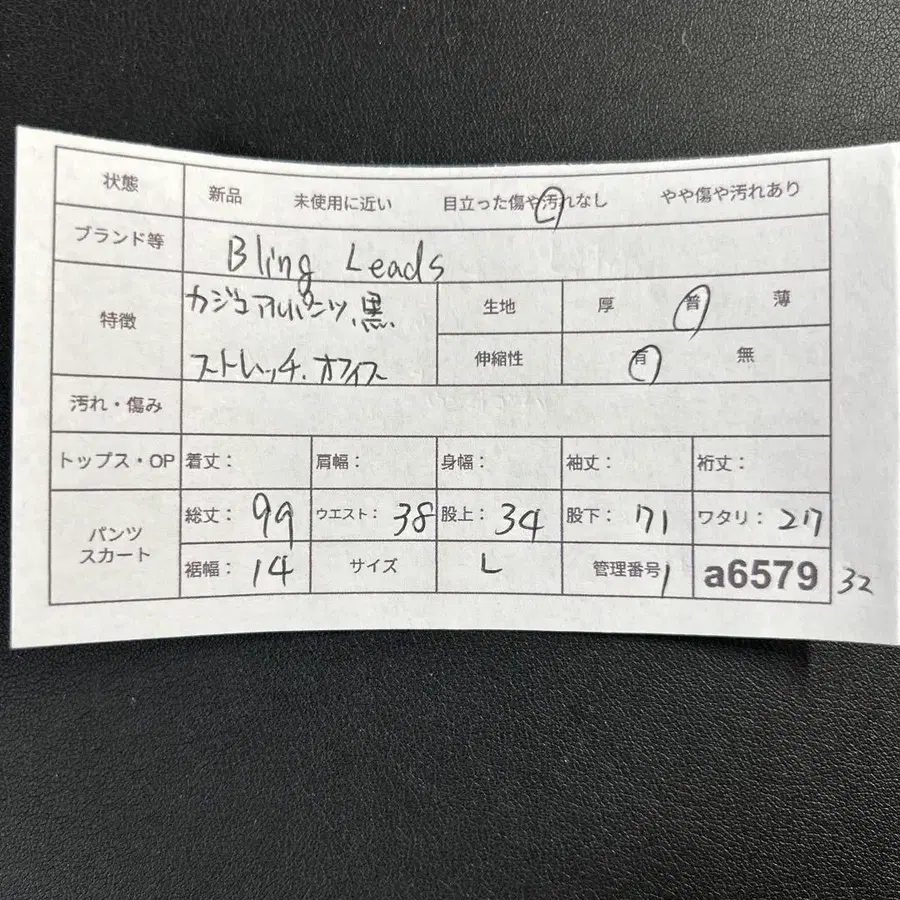 状態 新品 未使用に近い 目立った傷や汚れなし やや傷や汚れあり
ブランド等 Bling Leads
特徴 カジュアルパンツ、黒、 生地 厚 普 薄
ストレッチ、オフィス 伸縮性 有 無
汚れ・傷み
トップス・OP 着丈: 肩幅: 身幅: 袖丈: 裄丈:
パンツ スカート 総丈: 99 ウエスト: 38 股上: 34 股下: 71 ワタリ: 27
裾幅: 14 サイズ L 管理番号 1 a6579 32